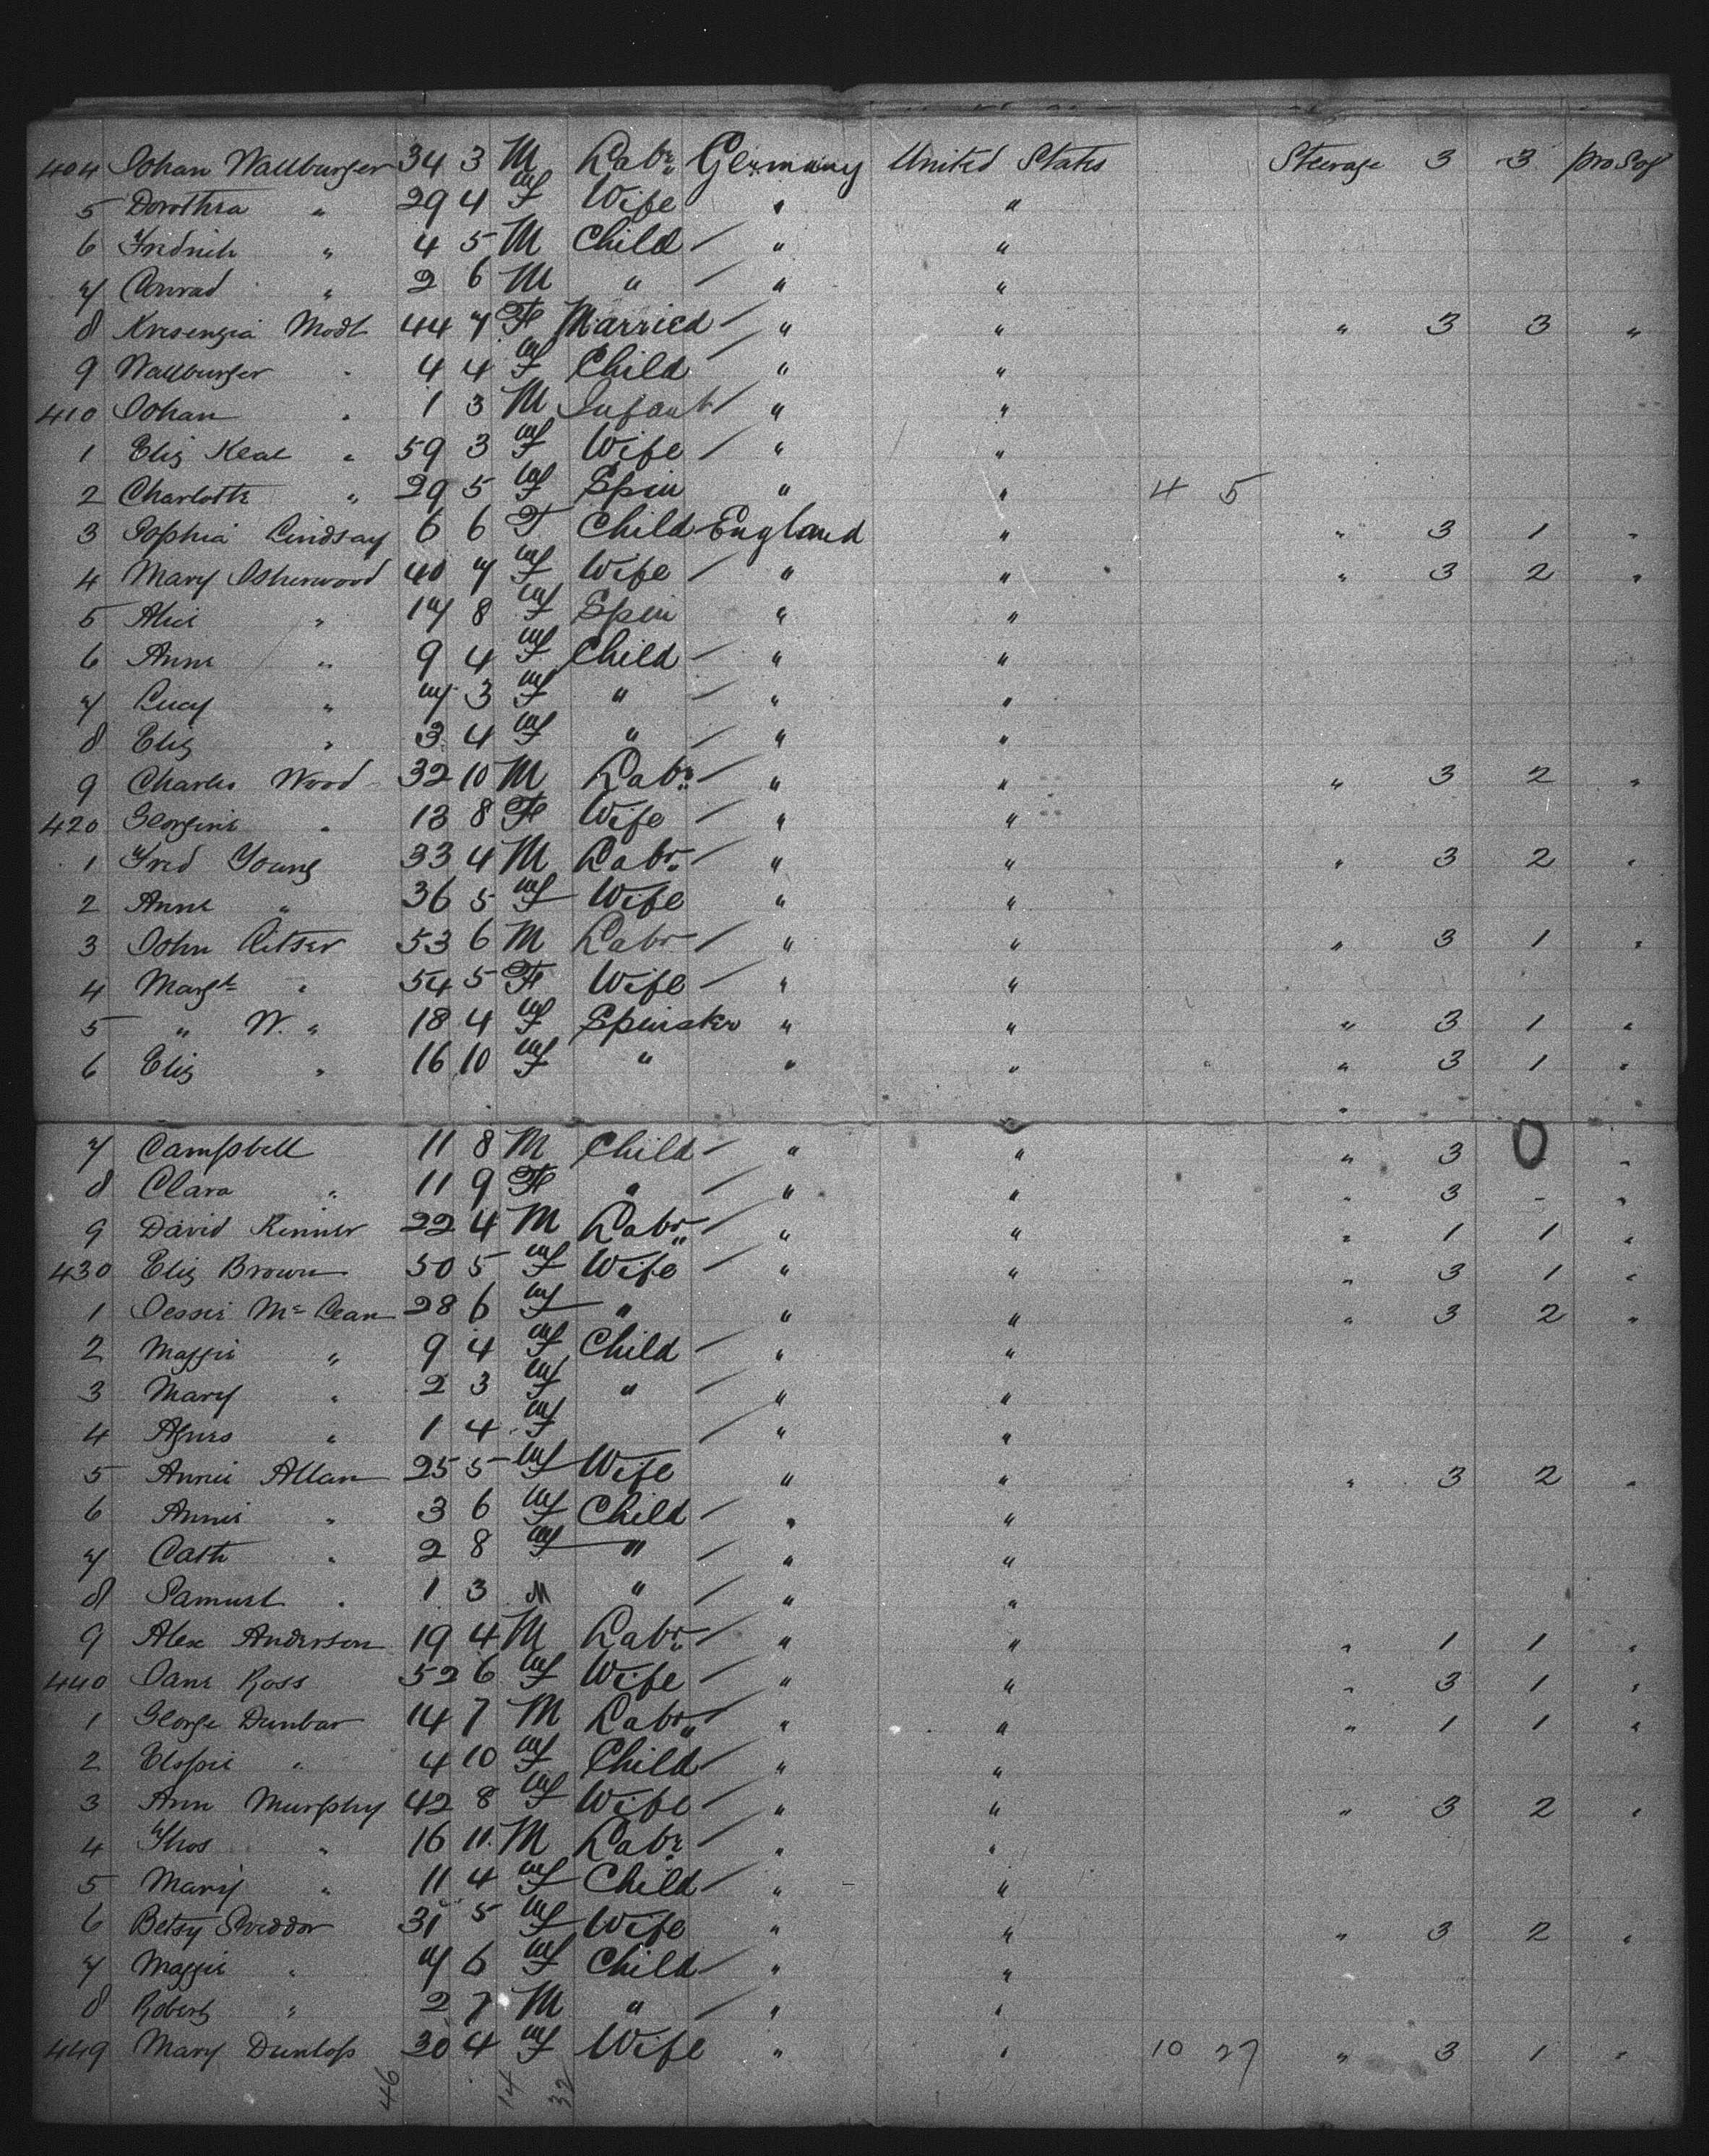 404 Johan Wallburger 34 3 M Labr. Germany United States Steerage 3 3 pro Soj
5 Dorothea " 29 4 F Wife " "
6 Fredrich " 4 5 M Child / " "
7 Conrad " 2 6 M " / " "
8 Kresengia Modt 44 7 F Married / " " " 3 3 "
9 Wallburger " 4 4 F Child / " "
410 Johan " 1 3 M Infant / " "
1 Eliz Keat " 59 3 F Wife / " "
2 Charlotte " 29 5 F Spin " " 4 5
3 Sophia Lindsay 6 6 F Child England " " 3 1 "
4 Mary Isherwood 40 7 F Wife / " " " 3 2 "
5 Alice " 17 8 F Spin " "
6 Anne " 9 4 F Child / " "
7 Lucy " 7 3 F " / " "
8 Eliz " 3 4 F " / " "
9 Charles Wood 32 10 M Labr. / " " " 3 2 "
420 Georgine " 13 8 F Wife / " "
1 Fred Young 33 4 M Labr. / " " " 3 2 "
2 Anne " 36 5 F Wife " "
3 John 53 6 M Labr / " " " 3 1 "
4 Margt " 54 5 F Wife / " "
5 " W. " 18 4 F Spinster " " " 3 1 "
6 Eliz " 16 10 F " " " " 3 1 "
7 Campbell 11 8 M Child / " " " 3 0 "
8 Clara " 11 9 F " / " " " 3 - "
9 David Kinner 22 4 M Labr. / " " " 1 1 "
430 Eliz Brown 50 5 F Wife / " " " 3 1 "
1 Jessie Mc Lean 28 6 F " " " " 3 2 "
2 Maggie " 9 4 F Child / " "
3 Mary " 2 3 F " / " "
4 Agnes " 1 4 F / " "
5 Annie Allan 25 5 F Wife " " " 3 2 "
6 Annie " 3 6 F Child / " "
7 Cath " 2 8 F " / " "
8 Samuel " 1 3 M " / " "
9 Alex Anderson 19 4 M Labr. / " " " 1 1 "
440 Jane Ross 52 6 F Wife / " " " 3 1 "
1 George Dunbar 14 7 M Labr. / " " " 1 1 "
2 Elspie " 4 10 F Child / " "
3 Ann Murphy 42 8 F Wife / " " " 3 2 "
4 Thos " 16 11 M Labr. / " "
5 Mary " 11 4 F Child / " "
6 Betsy 31 5 F Wife " " " 3 2 "
7 Maggie " 7 6 F Child / " "
8 Robert " 2 7 M " / " "
449 Mary Dunlop 30 4 F Wife " " 10 27 " 3 1 "
46 14 32